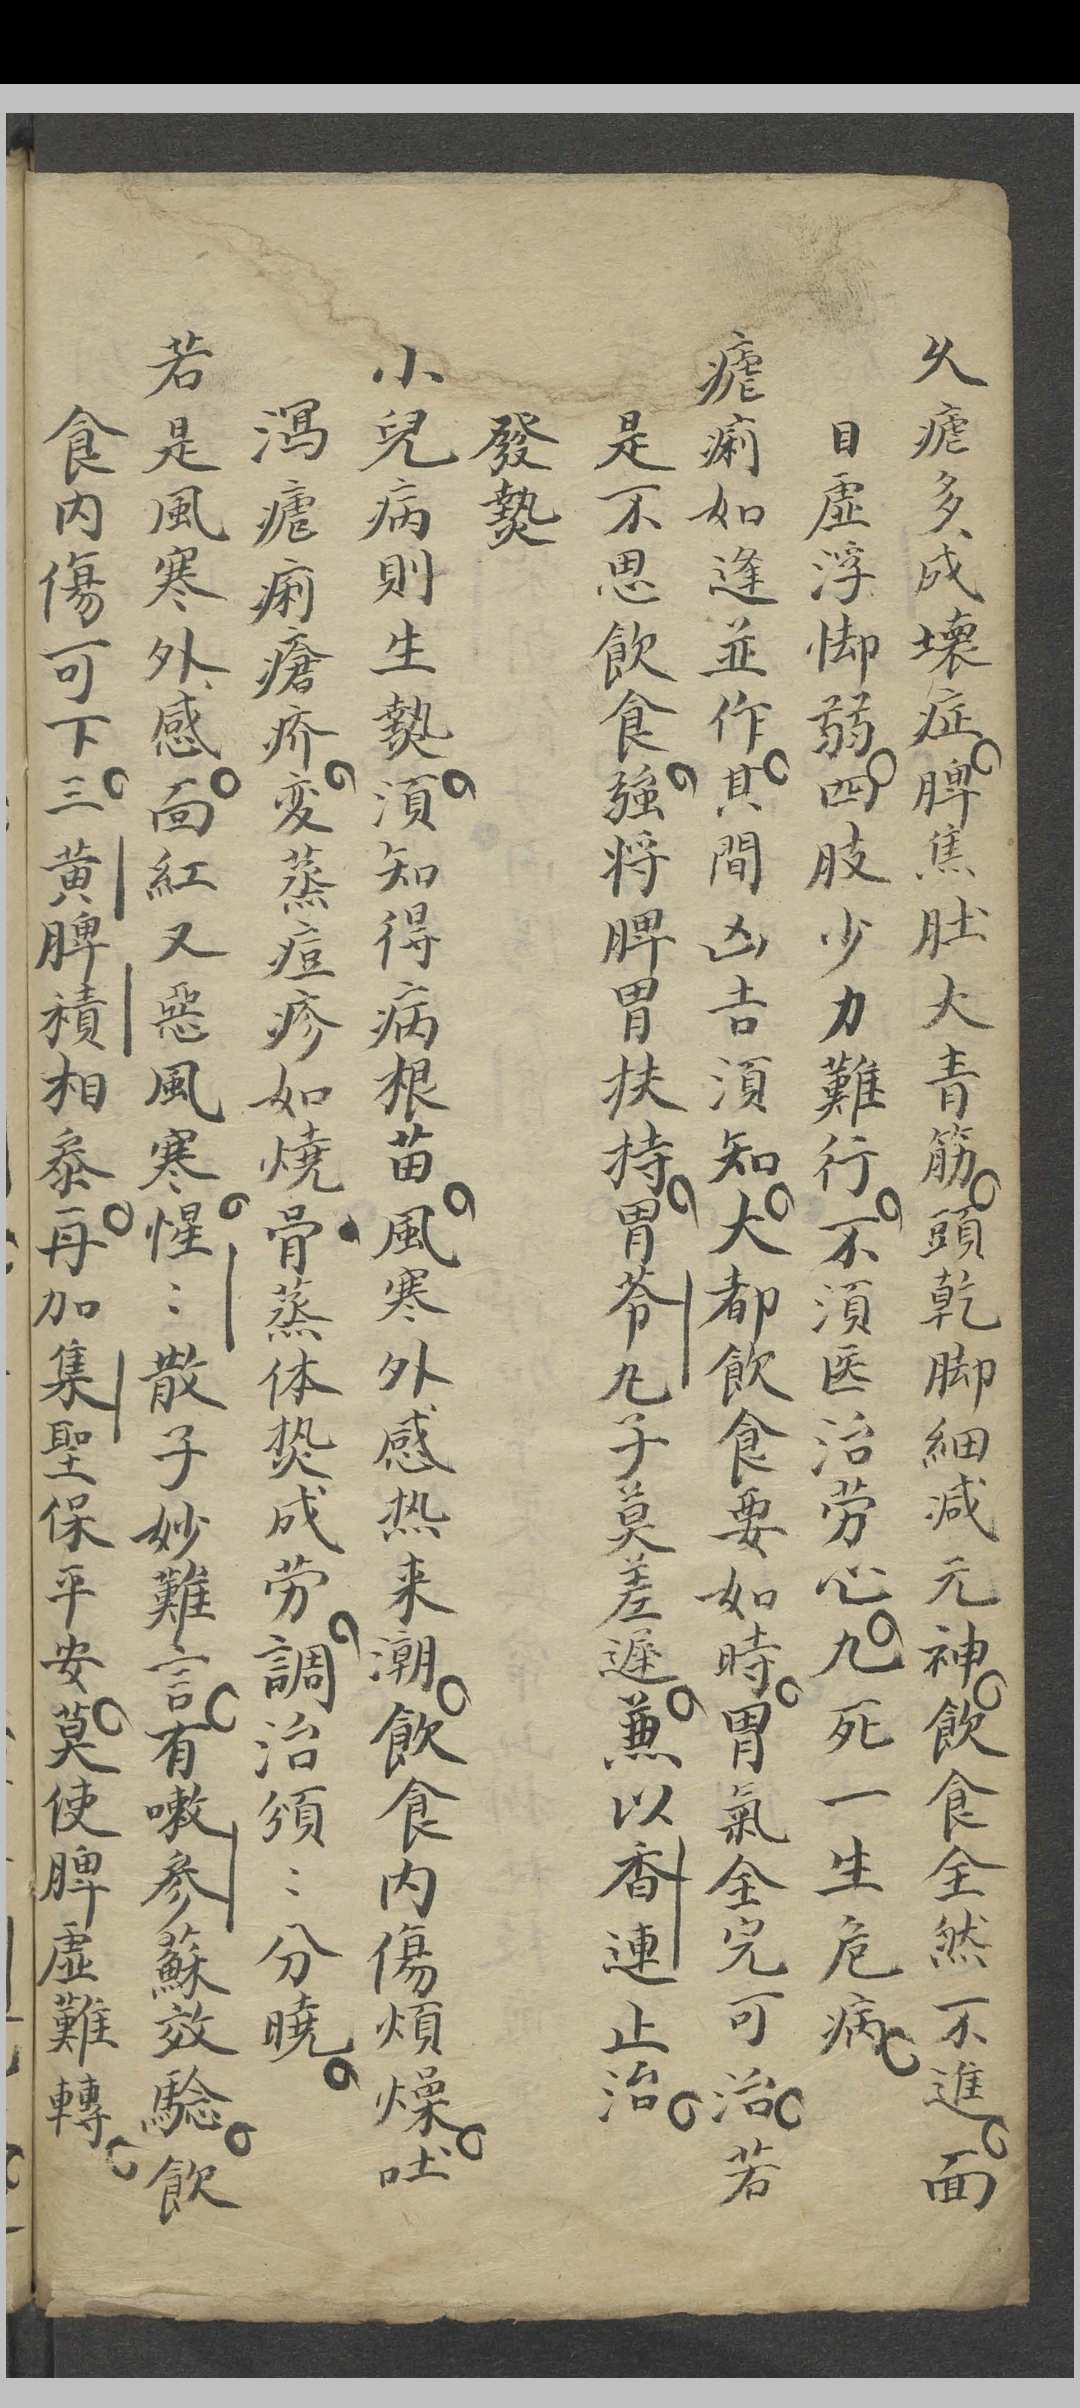 久瘧多成壞症脾焦肚大青筋頭乾脚細减元神飲食全然不進面
目虛浮脚弱四肢少力難行不湏医治劳心九死一生危病
瘧痢如逢並作其間凶吉湏知大都飲食要如時胃氣全完可治若
是不思飲食強将脾胃扶持胃苓丸子莫差遲蒹以香連止治
發𤍠
小兒病則生𤍠湏知得病根苗風寒外感热来潮飲食内傷煩燥吐
瀉瘧痢瘡疥変蒸痘疹如燒骨蒸体热成劳調治湏〻分曉
若是風寒外感面紅又惡風寒惺〻散子妙難言有嗽參蘇效驗飲
食内傷可下三黄脾積相叅再加集聖保平安莫使脾虛難轉